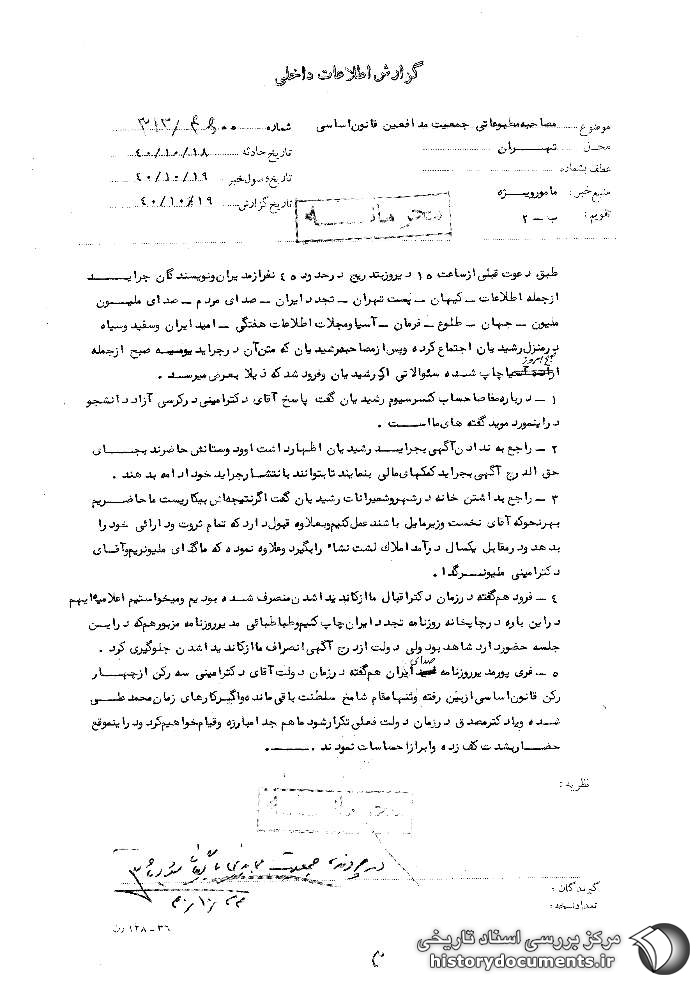 گزارش اطلاعات داخلی
موضوع مصاحبه مطبوعاتی جمعیت مدافعین قانون اساسی شماره
محل تهران تاریخ حادثه ۴۰/۱۰/۱۸
عطف بشماره تاریخ وصول خبر ۴۰/۱۰/۱۹
منبع خبر: مامور ویژه تاریخ گزارش ۴۰/۱۰/۱۹
تقویم: ب ـ ۲
طبق دعوت قبلی از ساعت ۱۵ دیروز بتدریج در حدود ۴۵ نفر از مدیران و نویسندگان جراید
از جمله اطلاعات ـ کیهان ـ پست تهران ـ تجدد ایران ـ صدای مردم ـ صدای ملیون
ملیون ـ جهان ـ طلوع ـ فرمان ـ آسیا و مجلات اطلاعات هفتگی ـ امید ایران و سفید و سیاه
در منزل رشیدیان اجتماع کرده و پس از مصاحبه رشیدیان که متن آن در جراید یومیه صبح از جمله
چاپ شده سئوالاتی از رشیدیان و فرود شد که ذیلا بعرض میرسد.
۱ ـ درباره مفاصا حساب کنسرسیوم رشیدیان گفت پاسخ آقای دکتر امینی در کرسی آزاد دانشجو
در اینمورد موید گفته های ما است.
۲ ـ راجع به ندادن آگهی بجراید رشیدیان اظهار داشت او و دوستانش حاضرند بجای
حق الدرج آگهی بجراید کمکهای مالی بنمایند تا بتوانند بانتشار جراید خود ادامه بدهند.
۳ ـ راجع بداشتن خانه در شهر و شمیرانات رشیدیان گفت اگر نتیجه اش بیکاریست ما حاضریم
بهر نحو که آقای نخست وزیر مایل باشند عمل کنیم و بعلاوه قبول دارد که تمام ثروت و دارائی خود را
بدهد و در مقابل یکسال درآمد املاک لشت نشاء را بگیرد و علاوه نموده که ما گدای ملیونریم و آقای
دکتر امینی ملیونر گدا.
۴ ـ فرود هم گفته در زمان دکتر اقبال ما از کاندید شدن منصرف شده بودیم و میخواستیم اعلامیه ایهم
در این باره در چاپخانه روزنامه تجدد ایران چاپ کنیم و طباطبائی مدیر روزنامه مزبور هم که در این
جلسه حضور دارد شاهد بود ولی دولت از درج آگهی انصراف ما از کاندید شدن جلوگیری کرد.
۵ ـ فری پور مدیر روزنامه صدای ایران هم گفته در زمان دولت آقای دکتر امینی سه رکن از چهار
رکن قانون اساسی از بین رفته و تنها مقام شامخ سلطنت باقی مانده و اگر کارهای زمان محمد علی
شده و یا دکتر مصدق در زمان دولت فعلی تکرار شود ما هم جدا مبارزه و قیام خواهیم کرد و در اینموقع
حضار بشدت کف زده و ابراز احساسات نمودند.
نظریه:
گیرندگان:
تعداد نسخه:
۳۶ ـ ۱۲۸
مرکز بررسی اسناد تاریخی
historydocuments.ir